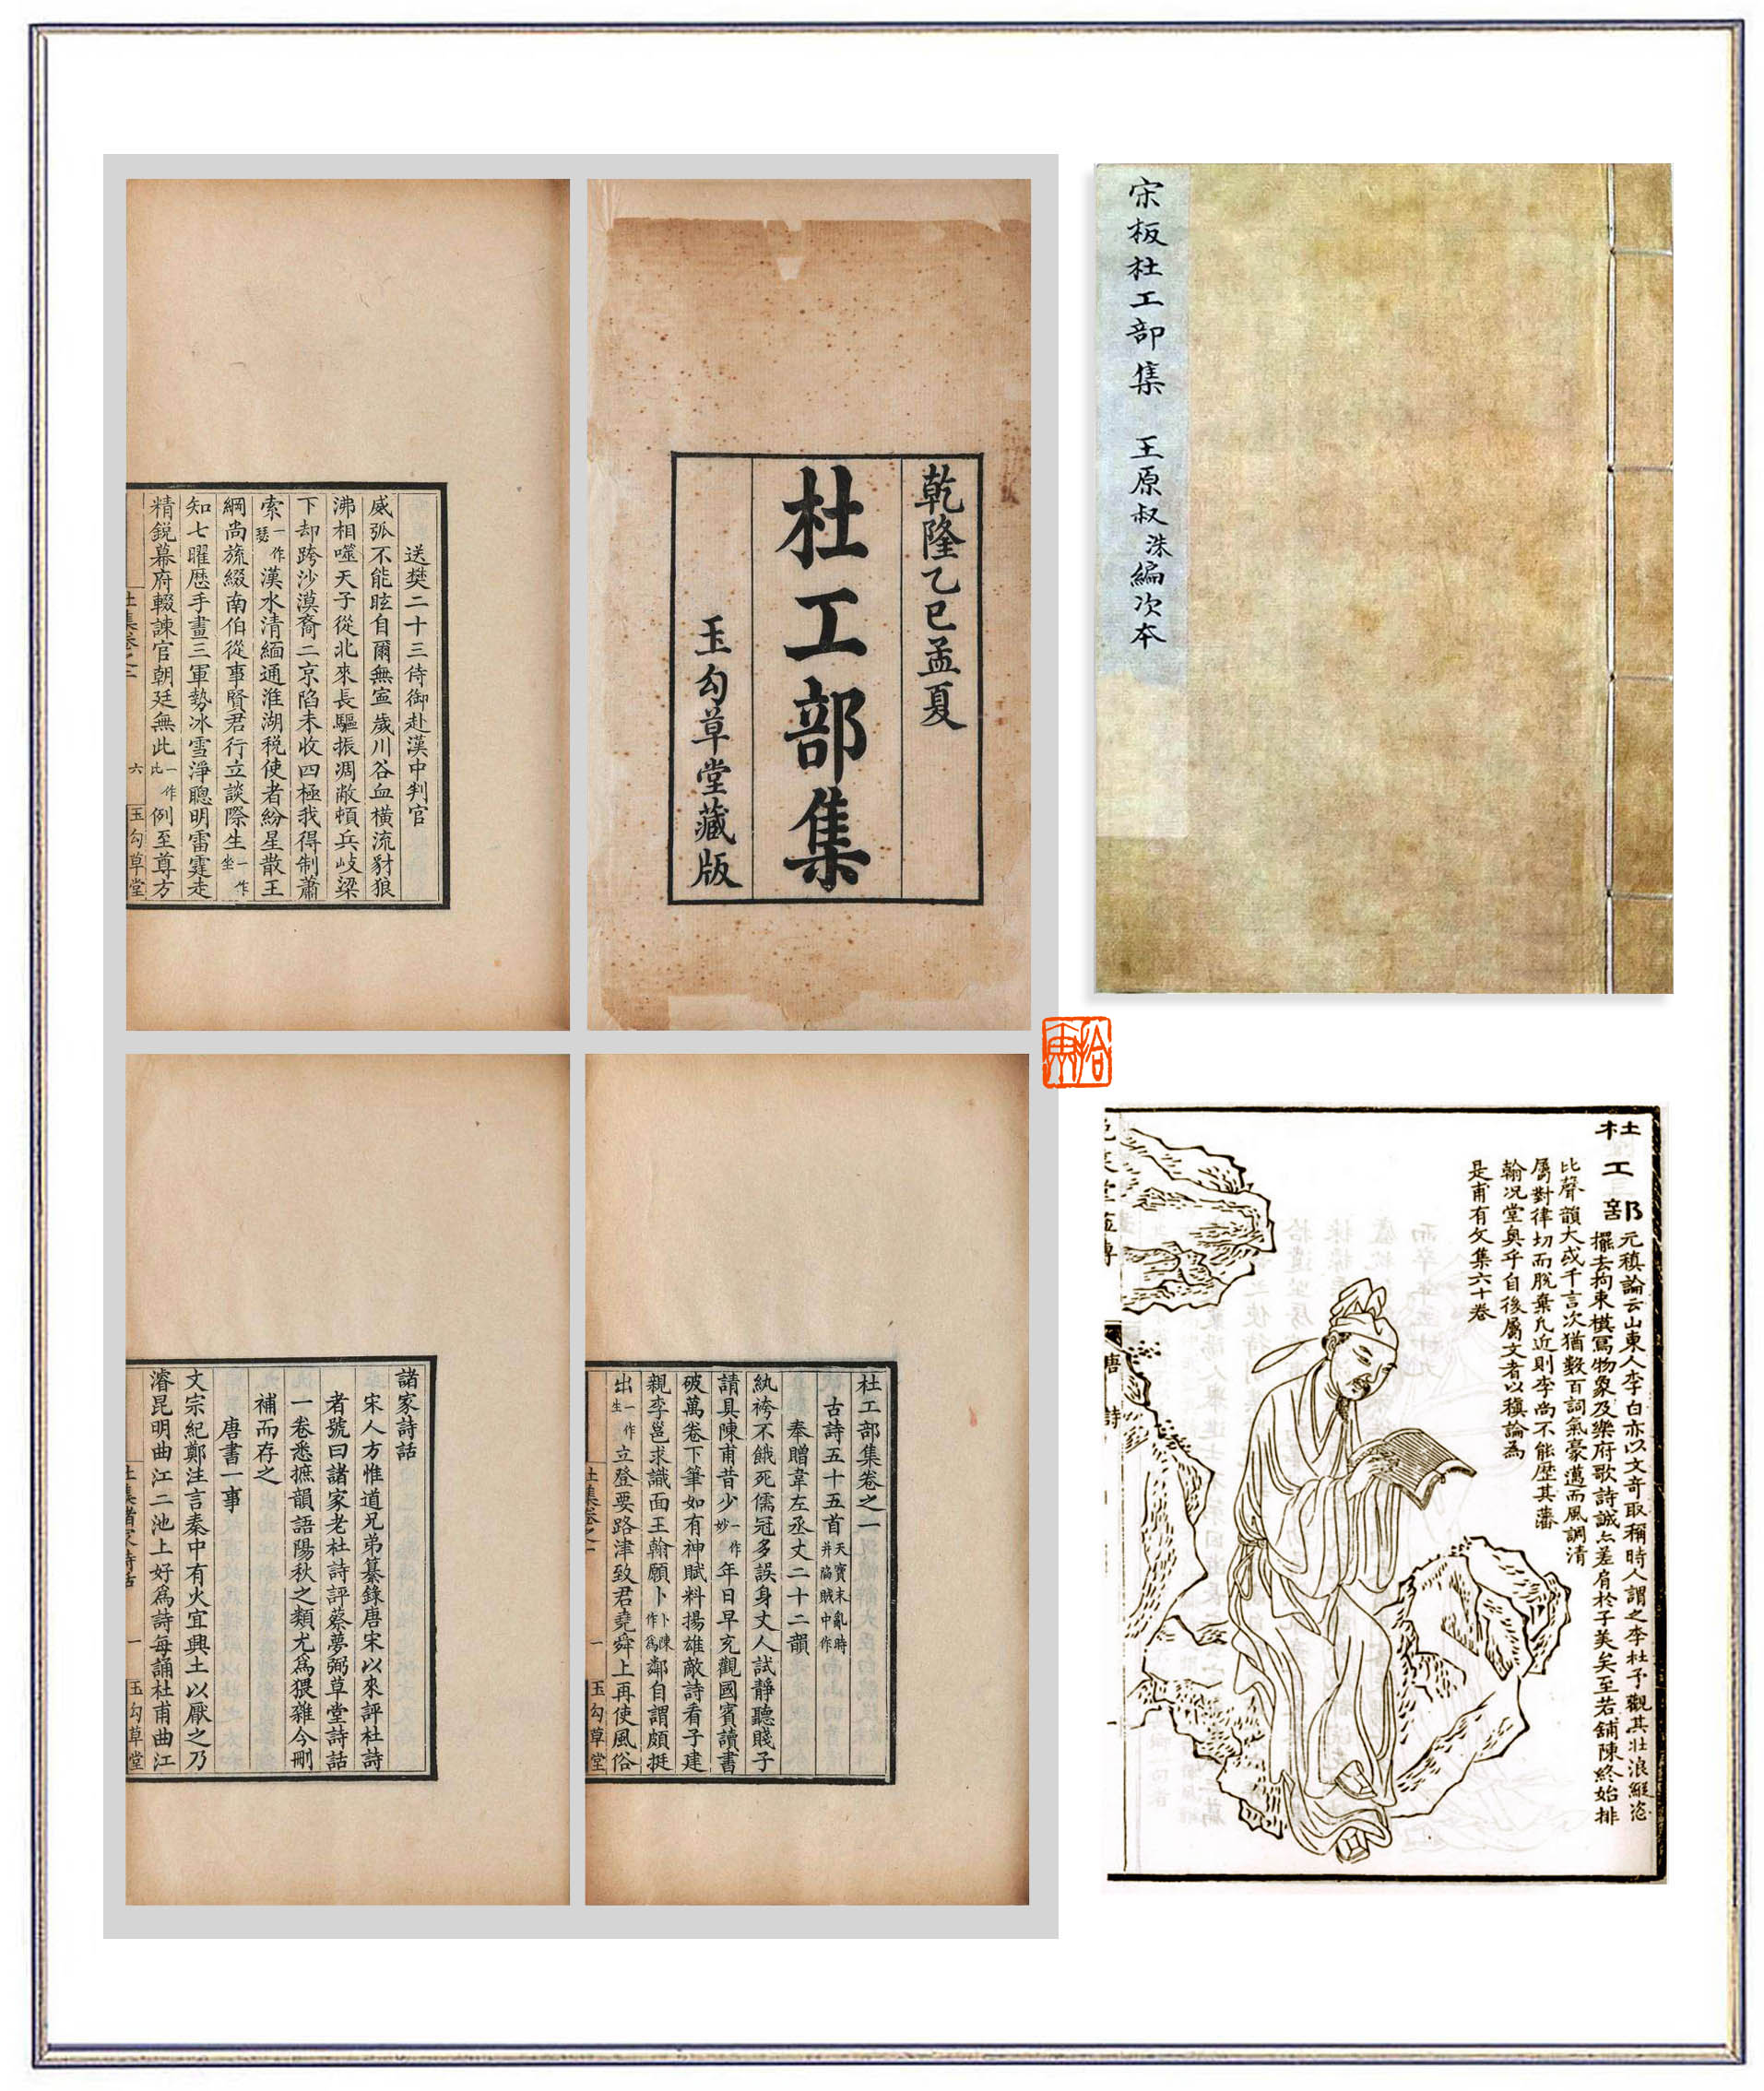 宋板杜工部集 王原叔洙編次本
乾隆乙巳孟夏
杜工部集
玉勾草堂藏版
送樊二十三侍御赴漢中判官
威弧不能眩自爾無寍歲川谷血橫流豺狼
沸相噬天子從北來長驅振凋敝頓兵岐梁
下却跨沙漠裔二京陷未收四極我得制蕭
索一作瑟漢水清緬通淮湖税使者紛星散王
綱尚旒綴南伯從事賢君行立談際生一作坐
知七曜歷手畫三軍勢冰雪淨聰明雷霆走
精鋭幕府輟諫官朝廷無此一作比例至尊方
杜集卷之二 六 玉勾草堂
杜工部集卷之一
古詩五十五首天寶末亂時并陷賊中作
奉贈韋左丞丈二十二韻
紈袴不餓死儒冠多誤身丈人試靜聽賤子
請具陳甫昔少一作妙年日早充觀國賓讀書
破萬卷下筆如有神賦料揚雄敵詩看子建
親李邕求識面王翰願卜卜陳作爲鄰自謂頗挺
出一作生立登要路津致君堯舜上再使風俗
杜集卷之一 一 玉勾草堂
諸家詩話
宋人方惟道兄弟纂錄唐宋以來評杜詩
者號曰諸家老杜詩評蔡夢弼草堂詩話
一卷悉摭韻語陽秋之類尤爲猥雜今刪
補而存之
唐書一事
文宗紀鄭注言秦中有火宜興土以厭之乃
濬昆明曲江二池上好爲詩每誦杜甫曲江
杜集諸家詩話 一 玉勾草堂
杜工部
元稹論云山東人李白亦以文奇取稱時人謂之李杜予觀其壯浪縱恣
擺去拘束模寫物象及樂府歌詩誠亦差肩於子美矣至若鋪陳終始排
比聲韻大或千言次猶數百詞氣豪邁而風調清
屬對律切而脫棄凡近則李尚不能歷其藩
翰况堂奥乎自後屬文者以稹論為
是甫有文集六十卷